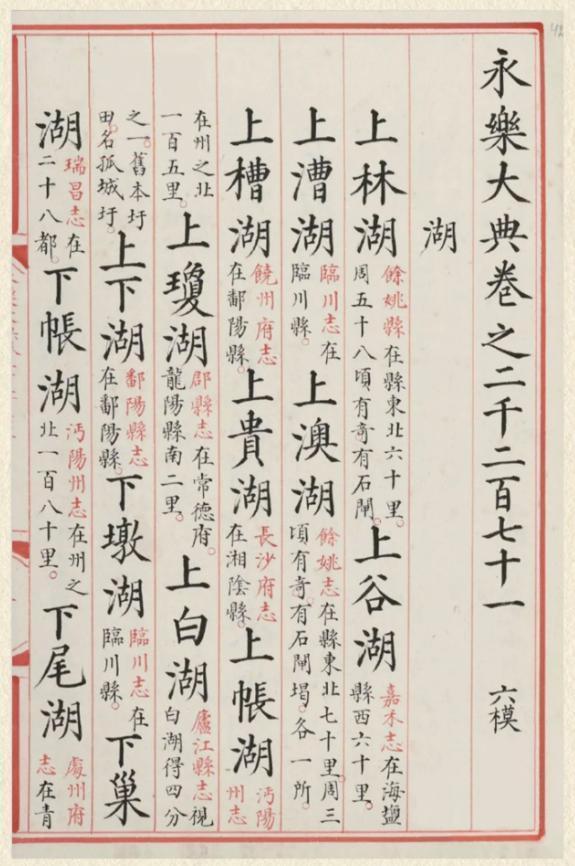 永樂大典卷之二千二百七十一 六模
湖
上林湖餘姚縣在縣東北六十里。周五十八頃有奇有石閘。上谷湖嘉禾志在海鹽縣西六十里。
上漕湖臨川志在臨川縣。上澳湖餘姚志在縣東北七十里。周三頃有奇。有石閘堨。各一所。
上槽湖饒州府志在鄱陽縣。上貴湖長沙府志在湘陰縣。上帳湖沔陽州志
在州之北一百五里。上瓊湖郡縣志在常德府。龍陽縣南二里。上白湖廬江縣志視白湖得四分
之一。舊本圩田名孤城圩。上下湖鄱陽縣志在鄱陽縣。下墩湖臨川志在臨川縣。下巢
湖瑞昌志在二十八都。下帳湖沔陽州志在州之北一百八十里。下尾湖處州府志在青